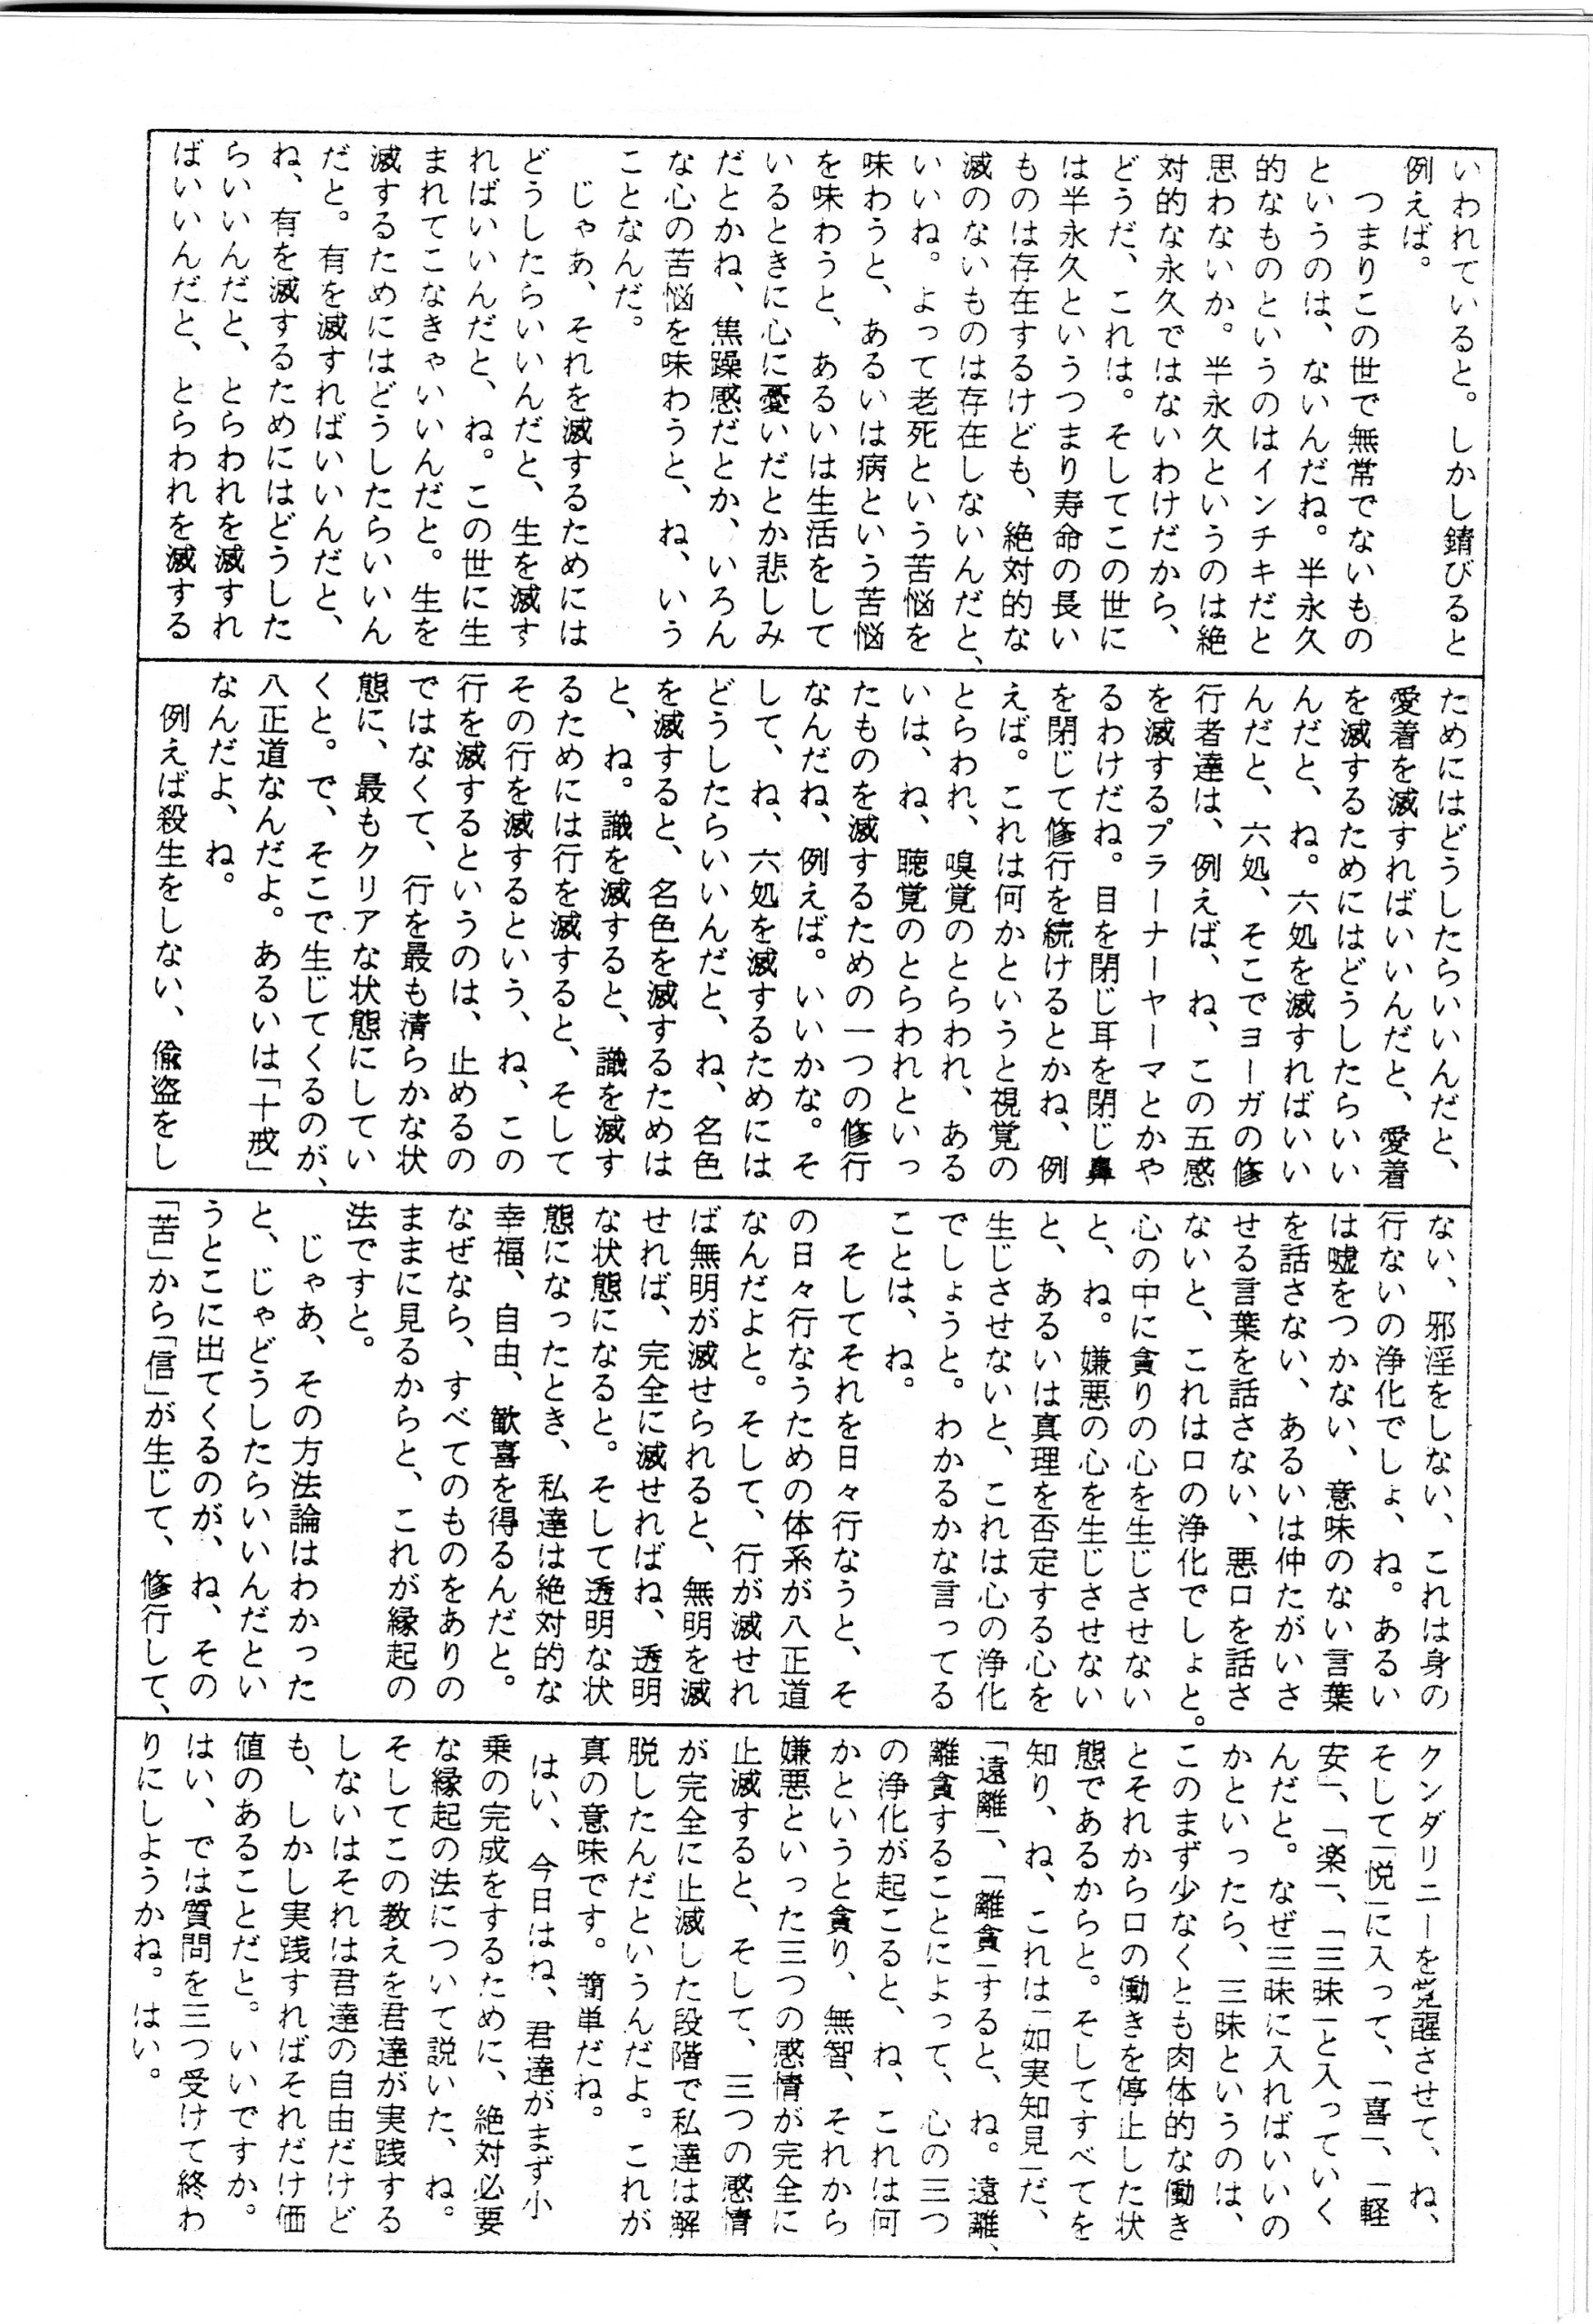 いわれていると。しかし錆びると
例えば。
　つまりこの世で無常でないもの
というのは、ないんだね。半永久
的なものというのはインチキだと
思わないか。半永久というのは絶
対的な永久ではないわけだから、
どうだ、これは。そしてこの世に
は半永久というつまり寿命の長い
ものは存在するけども、絶対的な
滅のないものは存在しないんだと、
いいね。よって老死という苦悩を
味わうと、あるいは病という苦悩
を味わうと、あるいは生活をして
いるときに心に憂いだとか悲しみ
だとかね、焦躁感だとか、いろん
な心の苦悩を味わうと、ね、いう
ことなんだ。
　じゃあ、それを滅するためには
どうしたらいいんだと、生を滅す
ればいいんだと、ね。この世に生
まれてこなきゃいいんだと。生を
滅するためにはどうしたらいいん
だと。有を滅すればいいんだと、
ね、有を滅するためにはどうした
らいいんだと、とらわれを滅すれ
ばいいんだと、とらわれを滅する
ためにはどうしたらいいんだと、
愛着を滅すればいいんだと、愛着
を滅するためにはどうしたらいい
んだと、ね。六処を滅すればいい
んだと、六処、そこでヨーガの修
行者達は、例えば、ね、この五感
を滅するプラーナーヤーマとかや
るわけだね。目を閉じ耳を閉じ鼻
を閉じて修行を続けるとかね、例
えば。これは何かというと視覚の
とらわれ、嗅覚のとらわれ、ある
いは、ね、聴覚のとらわれといっ
たものを滅するための一つの修行
なんだね、例えば。いいかな。そ
して、ね、六処を滅するためには
どうしたらいいんだと、ね、名色
を滅すると、名色を滅するためは
と、ね。識を滅すると、識を滅す
るためには行を滅すると、そして
その行を滅するという、ね、この
行を滅するというのは、止めるの
ではなくて、行を最も清らかな状
態に、最もクリアな状態にしてい
くと。で、そこで生じてくるのが、
八正道なんだよ。あるいは「十戒」
なんだよ、ね。
　例えば殺生をしない、偸盗をし
ない、邪淫をしない、これは身の
行ないの浄化でしょ、ね。あるい
は嘘をつかない、意味のない言葉
を話さない、あるいは仲たがいさ
せる言葉を話さない、悪口を話さ
ないと、これは口の浄化でしょと。
心の中に貪りの心を生じさせない
と、ね。嫌悪の心を生じさせない
と、あるいは真理を否定する心を
生じさせないと、これは心の浄化
でしょうと。わかるかな言ってる
ことは、ね。
　そしてそれを日々行なうと、そ
の日々行なうための体系が八正道
なんだよと。そして、行が滅せれ
ば無明が滅せられると、無明を滅
せれば、完全に滅せればね、透明
な状態になると。そして透明な状
態になったとき、私達は絶対的な
幸福、自由、歓喜を得るんだと。
なぜなら、すべてのものをありの
ままに見るからと、これが縁起の
法ですと。
　じゃあ、その方法論はわかった
と、じゃどうしたらいいんだとい
うとこに出てくるのが、ね、その
「苦」から「信」が生じて、修行して、
クンダリニーを覚醒させて、ね、
そして「悦」に入って、「喜」、「軽
安」、「楽」、「三昧」と入っていく
んだと。なぜ三昧に入ればいいの
かといったら、三昧というのは、
このまず少なくとも肉体的な働き
とそれから口の働きを停止した状
態であるからと。そしてすべてを
知り、ね、これは「如実知見」だ、
「遠離」、「離貪」すると、ね。遠離、
離貪することによって、心の三つ
の浄化が起こると、ね、これは何
かというと貪り、無智、それから
嫌悪といった三つの感情が完全に
止滅すると、そして、三つの感情
が完全に止滅した段階で私達は解
脱したんだというんだよ。これが
真の意味です。簡単だね。
　はい、今日はね、君達がまず小
乗の完成をするために、絶対必要
な縁起の法について説いた、ね。
そしてこの教えを君達が実践する
しないはそれは君達の自由だけど
も、しかし実践すればそれだけ価
値のあることだと。いいですか。
はい、では質問を三つ受けて終わ
りにしようかね。はい。